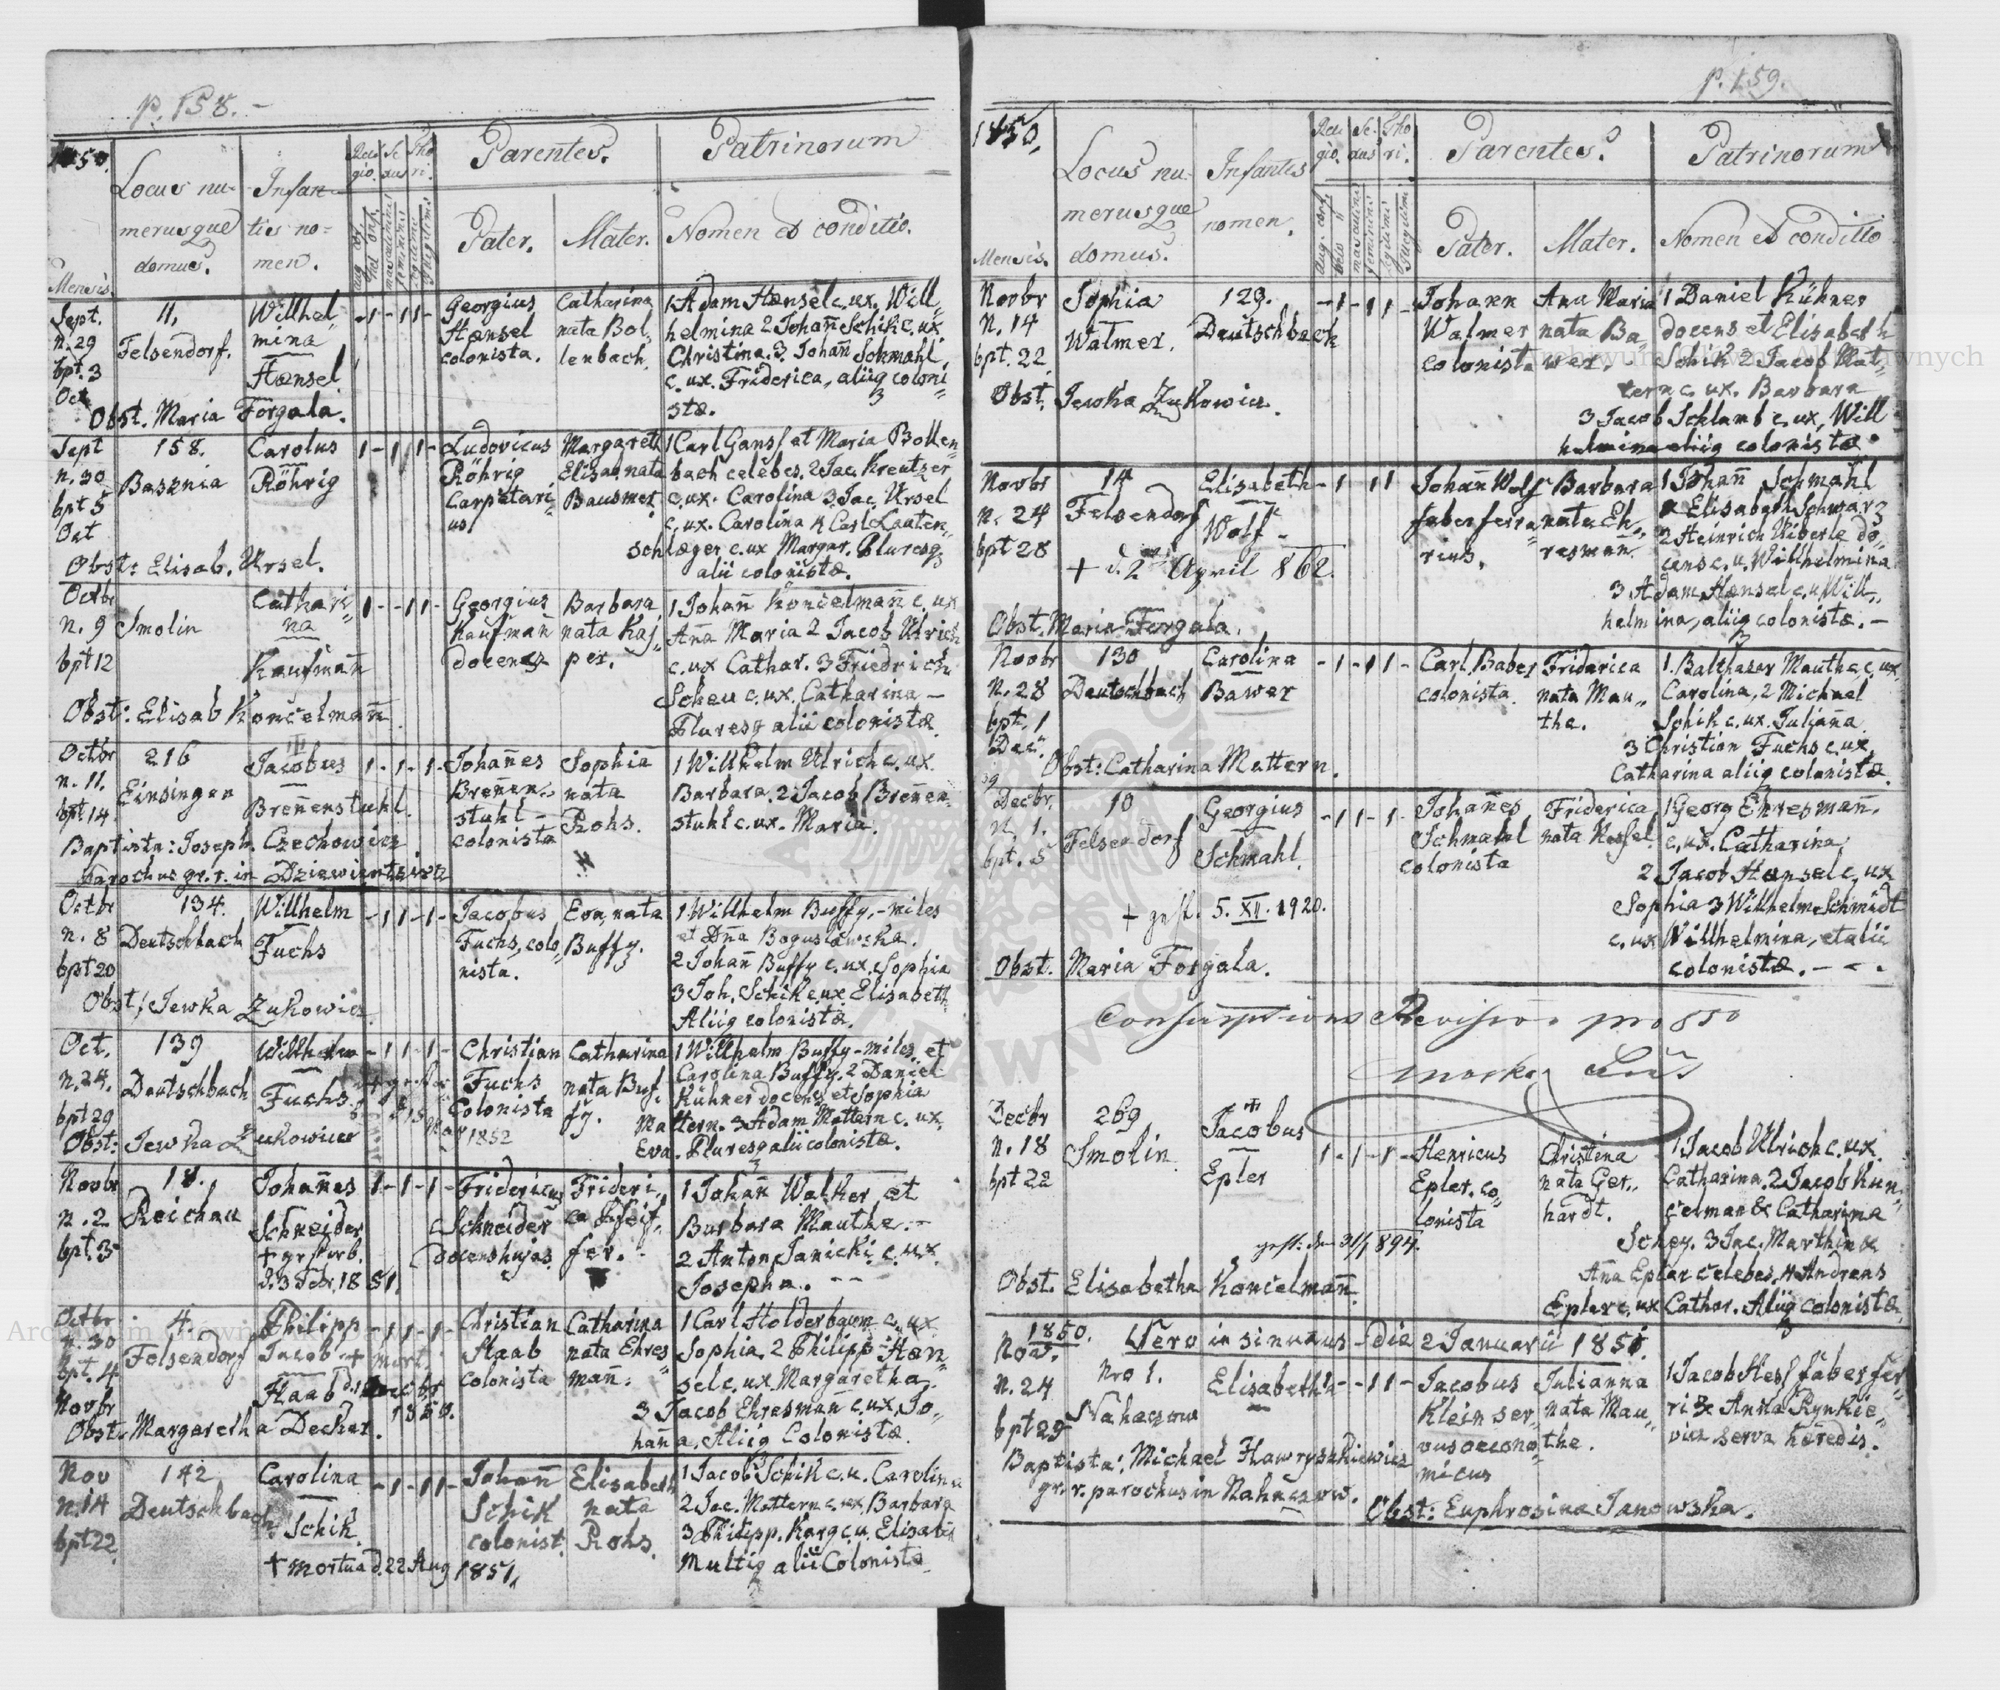 p. 158. -
1850.
Locus nu-
merusque
domus.
Infan-
tis no-
men.
Reli
gio.
Se
xus
Tho
ri.
Parentes.
Patrinorum
Mensis.
Pater.
Mater.
Nomen et conditio.
Sept.
n. 29
bpt. 3
Oct
11.
Felsendorf.
Wilhel-
mina
Hænsel
Georgius
Hænsel
colonista.
Catharina
nata Bol,
lenbach.
1 Adam Hænsel c. ux. Will,
helmina 2 Johañ Schik c. ux.
Christina. 3 Johañ Schmahl
c. ux. Friderica, aliiq coloni
stæ.
Obst. Maria Forgala.
Sept
n. 30
bpt 5
Oct
158.
Basznia
Carolus
Röhrig
Ludovicus
Röhrig
Carpetari
us.
Margareth
Elisab. nata
Bausmer.
1 Carl Ganss et Maria Bollen,
bach celebes. 2 Jac. Kreutzer
c. ux. Carolina 3 Jac. Ursel
c. ux. Carolina 4 Carl Lauten,
schlæger c. ux Margar. Pluresq
alii colonistæ.
Obst: Elisab. Ursel.
Octbr
n. 9
bpt 12
Smolin
Cathari,
na
Kaufmañ
Georgius
Kaufmañ
docens
Barbara
nata Kaj,
per.
1 Johañ Koncelmañ c. ux
Aña Maria 2 Jacob Ulrich
c. ux Cathar. 3 Friedrich
Scheu c. ux. Catharina -
Pluresq alii colonistæ
Obst: Elisab Koncelmañ
Octbr
n. 11.
bpt 14.
216
Einsingen
Jacobus
Breñenstuhl.
Johañes
Breñen,
stuhl -
colonista
Sophia
nata
Rohs.
1 Willhelm Ulrich c. ux.
Barbara. 2 Jacob Breñen,
stuhl c. ux. Maria.
Baptista: Joseph Czechowicz
Parochus gr. r. in Dziewientzierz
Octbr
n. 8
bpt 20
134.
Deutschbach
Willhelm
Fuchs
Jacobus
Fuchs, colo,
nista.
Eva, nata
Buffy.
1 Willhelm Buffy, - miles
et Dña Bogusławska.
2 Johañ Buffy c. ux. Sophia
3 Joh. Schik c. ux Elisabeth
Aliiq colonistæ.
Obst: Jewka Zukowicz
Oct.
n. 24.
bpt 29
139
Deutschbach
Willhelm
Fuchs
Mar 1852
Christian
Fuchs
Colonista
Catharina
nata Buf,
fy.
1 Willhelm Buffy - miles et
Carolina Buffy. 2 Daniel
Kühner docens et Sophia
Mattern. 3 Adam Mattern c. ux.
Eva. Pluresq alii colonistæ.
Obst: Jewka Zukowicz
Novbr
n. 2
bpt. 3
18.
Reichau
Johañes
Schneider
† gestorb.
d. 3 Febr. 1851.
Fridericus
Schneider
docens hujas
Frideri,
ca Pfeif,
fer.
1 Johañ Walker et
Barbara Mauthe. -
2 Anton Janicki c. ux.
Josepha. - -
Octbr
n. 30
bpt. 4
Novbr
4.
Felsendorf
Philipp
Jacob † mort.
Staab d. 1 Decbr
1850.
Christian
Staab
colonista
Catharina
nata Ehres,
mañ.
1 Carl Holderbaum c. ux.
Sophia 2 Philipp Hæn,
sel c. ux. Margaretha.
3 Jacob Ehresmañ c. ux. Jo,
haña. Aliiq Colonistæ.
Obst. Margaretha Decher.
Nov
n. 14
bpt 22
142
Deutschbach
Carolina
Schik
Johañ
Schik
colonist.
Elisabeth
nata
Rohs.
1 Jacob Schik c. u. Carolina
2 Jac. Mattern c. ux. Barbara
3 Philipp. Karg c. u. Elisabeth
Multiq alii Colonistæ
† mortua d. 22 Aug 1851.
p. 159.
1850.
Locus nu-
merusque
domus.
Infantis
nomen.
Reli
gio.
Se-
xus
Tho
ri.
Parentes.
Patrinorum
Mensis.
Pater.
Mater.
Nomen et conditio
Novbr
n. 14
bpt. 22.
Sophia
Walmer.
129.
Deutschbach
Johann
Walmer
colonista
Ana Maria
nata Ba,
wer.
1 Daniel Kühner
docens et Elisabeth
Schik 2 Jacob Mat,
tern c. ux. Barbara
3 Jacob Schlamb c. ux. Will
helmina aliiq colonistæ.
Obst. Jewka Zukowicz.
Novbr
n. 24
bpt 28
14
Felsendorf
Elisabeth
Wolf -
† d. 2 April 862.
Johañ Wolf
faber ferra,
rius.
Barbara
nata Eh,
resmañ.
1 Johañ Schmahl
& Elisabeth Schwarz
2 Heinrich Wiberle do,
cens c. u. Willhelmina
3 Adam Hænsel c. u Will,
helmina, aliiq colonistæ. -
Obst. Maria Forgala.
Novbr
n. 28
bpt. 1
Dec.
130
Deutschbach
Carolina
Bawer
Carl Baber
colonista
Friderica
nata Mau,
the.
1. Balthaser Mauthe c. ux.
Carolina, 2 Michael
Schik c. ux. Juliaña
3 Christian Fuchs c. ux
Catharina aliiq colonistæ.
Obst: Catharina Mattern.
Decbr.
n. 1.
bpt. 5
10
Felsendorf
Georgius
Schmahl
Johañes
Schmahl
colonista
Friderica
nata Nessel.
1 Georg Ehresmañ.
c. ux. Catharina
2 Jacob Hænsel c. ux
Sophia 3 Willhelm Schmidt
c. ux Willhelmina, et alii
colonistæ. - - .
† gest. 5. XII. 1920.
Obst. Maria Forgala.
Conscriptions Revision pro 850
Decbr
n. 18
bpt 22
269
Smolin
Jacobus
Epler
Henricus
Epler. co,
lonista
Christina
nata Ger,
hardt.
1 Jacob Ulrich c. ux.
Catharina. 2 Jacob Kun,
celman & Catharina
Schey. 3 Jac. Marthin &
Aña Epler celebes. 4 Andreas
Epler c. ux Cathar. Aliiq colonistæ
gest: den 3/1 1894.
Obst. Elisabetha Koncelmañ.
1850.
Nov.
n. 24
bpt 29
Vero insinuaus - die 2 Januarii 1851.
Nro 1.
Nahaczow
Elisabetha
Jacobus
Klein ser,
vus oecono,
micus
Julianna
nata Mau,
the.
1 Jacob Hess faber fer,
ri & Anna Rynkie,
vicz serva heredis.
Baptista: Michael Hawryszkiewicz
gr. r. parochus in Nahaczow.
Obst: Euphrosina Janowska.